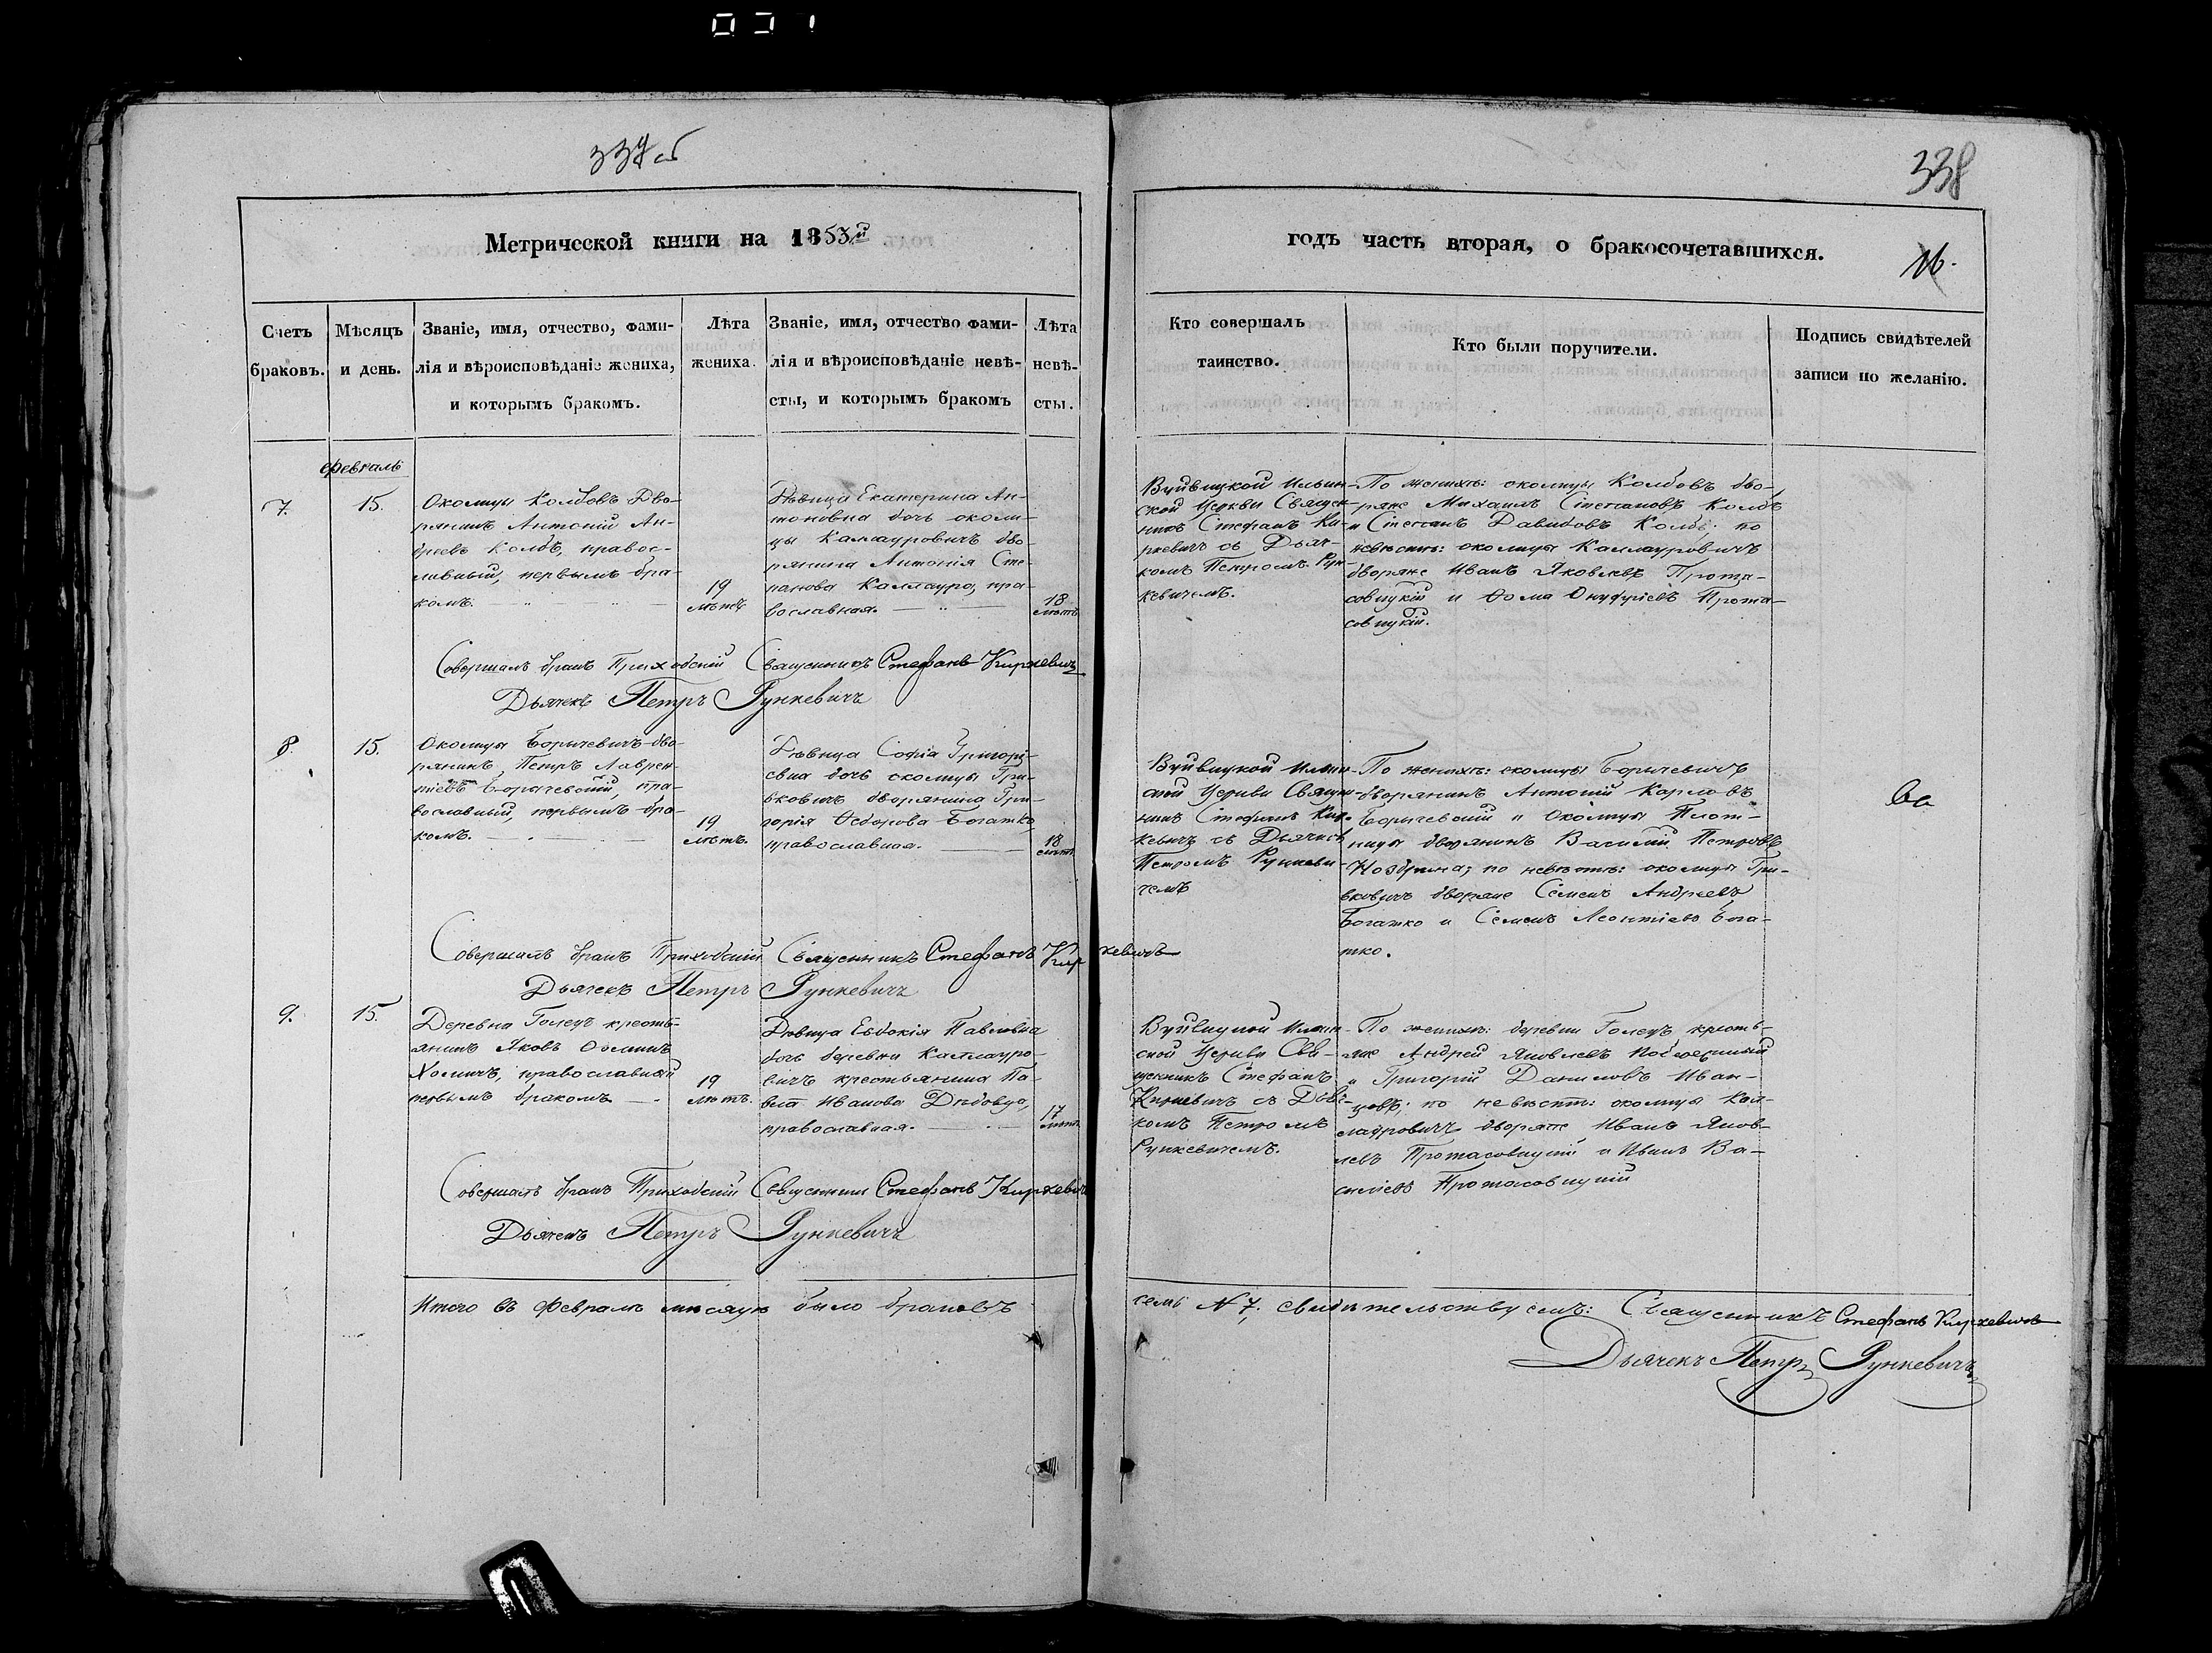 337об
338
Метрической книги на 1853й
годъ часть вторая, о бракосочетавшихся.
16.
Счетъ браковъ.
Мѣсяцъ и день.
Званіе, имя, отчество, фами-
лія и вѣроисповѣданіе жениха,
и которымъ бракомъ.
Лѣта
жениха.
Званіе, имя, отчество фами-
лія и вѣроисповѣданіе невѣ-
сты, и которымъ бракомъ
Лѣта
невѣ-
сты.
Кто совершалъ
таинство.
Кто были поручители.
Подпись свидѣтелей
записи по желанію.
Февраль
7.
15.
Околицы Колбовъ Дво-
рянинъ Антоній Ан-
дреевъ Колбъ, правос-
лавный, первымъ бра-
комъ.
19
лѣтъ
Дѣвица Екатерина Ан-
тоновна дочь околи-
цы Каллауровичъ дво-
рянина Антонія Сте-
панова Каллауро, пра-
вославная.
18
лѣтъ
Вуйвицкой Ильин-
ской Церкви Священ-
никъ Стефанъ Ки-
ркевичъ съ Дьяч-
комъ Петромъ Рун-
кевичемъ.
По женихѣ: околицы Колбовъ дво-
ряне Михаилъ Степановъ Колбъ
и Степанъ Давидовъ Колбъ; по
невѣстѣ: околицы Каллауровичъ
дворяне Иванъ Яковлевъ Прота-
совицкій и Ѳома Онуфріевъ Прота-
совицкій.
Совершалъ бракъ Приходскій Священникъ Стефанъ Киркевичъ
Дьячекъ Петръ Рункевичъ
8.
15.
Околицы Боричевичъ дво-
рянинъ Петръ Лаврен-
тіевъ Боричевскій, пра-
вославный, первымъ бра-
комъ.
19
лѣтъ.
Дѣвица Софія Григорі-
евна дочь околицы Гри-
вковичъ дворянина Гри-
горія Ѳедорова Богатко,
православная.
18
лѣтъ
Вуйвицкой Ильин-
ской Церкви Священ-
никъ Стефанъ Кир-
кевичъ съ Дьячкомъ
Петромъ Рункеви-
чемъ
По женихѣ: околицы Боричевичъ
дворянинъ Антоній Карловъ
Боричевскій и Околицы Плот-
ницы дворянинъ Василій Петровъ
Ноздрина; по невѣстѣ: околицы Гри-
вковичъ дворяне Семенъ Андреевъ
Богатко и Семенъ Леонтіевъ Бога-
тко.
Совершалъ бракъ Приходскій Священникъ Стефанъ Киркевичъ
Дьячекъ Петръ Рункевичъ
9.
15.
Деревни Голецъ кресть-
янинъ Яковъ Ѳоминъ
Хомичъ, православный
первымъ бракомъ
19
лѣтъ.
Дѣвица Евдокія Павловна
дочь деревни Каллауро-
вичъ крестьянина Па-
вла Иванова Дѣдовца,
православная.
17
лѣтъ
Вуйвицкой Ильин-
ской Церкви Свя-
щенникъ Стефанъ
Киркевичъ съ Дьяч-
комъ Петромъ
Рункевичемъ.
По женихѣ: деревни Голецъ кресть-
яне Андрей Яковлевъ
и Григорій Даниловъ Иван-
цовъ; по невѣстѣ: околицы Кал-
лауровичъ дворяне Иванъ Яков-
левъ Протасовицкій и Иванъ Ва-
сильевъ Протасовицкій
Совершалъ бракъ Приходскій Священникъ Стефанъ Киркевичъ
Дьячекъ Петръ Рункевичъ
Итого въ Февралѣ мѣсяцѣ было браковъ семь № 7, свидѣтельствуемъ: Священникъ Стефанъ Киркевичъ
Дьячекъ Петръ Рункевичъ